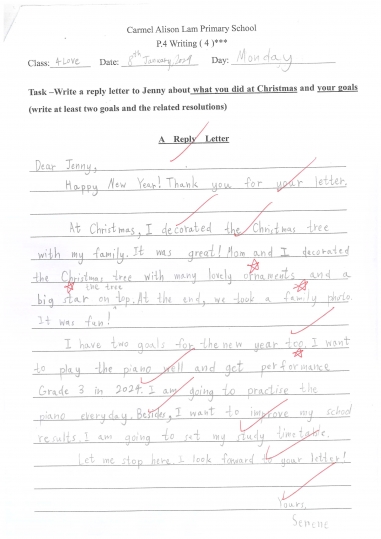 Carmel Alison Lam Primary School
P.4 Writing ( 4 )***
Class: 4 LOVE Date: 8th January, 2024 Day: Monday
Task –Write a reply letter to Jenny about what you did at Christmas and your goals
(write at least two goals and the related resolutions)
A Reply Letter
Dear Jenny,
Happy New Year! Thank you for your letter.
At Christmas, I decorated the Christmas tree
with my family. It was great! Mom and I decorated
the Christmas tree with many lovely ornaments, and a
big star on the tree top. At the end, we took a family photo.
It was fun!
I have two goals for the new year too. I want
to play the piano well and get performance
Grade 3 in 2024. I am going to practise the
piano everyday. Besides, I want to improve my school
results. I am going to set my study timetable.
Let me stop here. I look forward to your letter!
Yours,
Serene